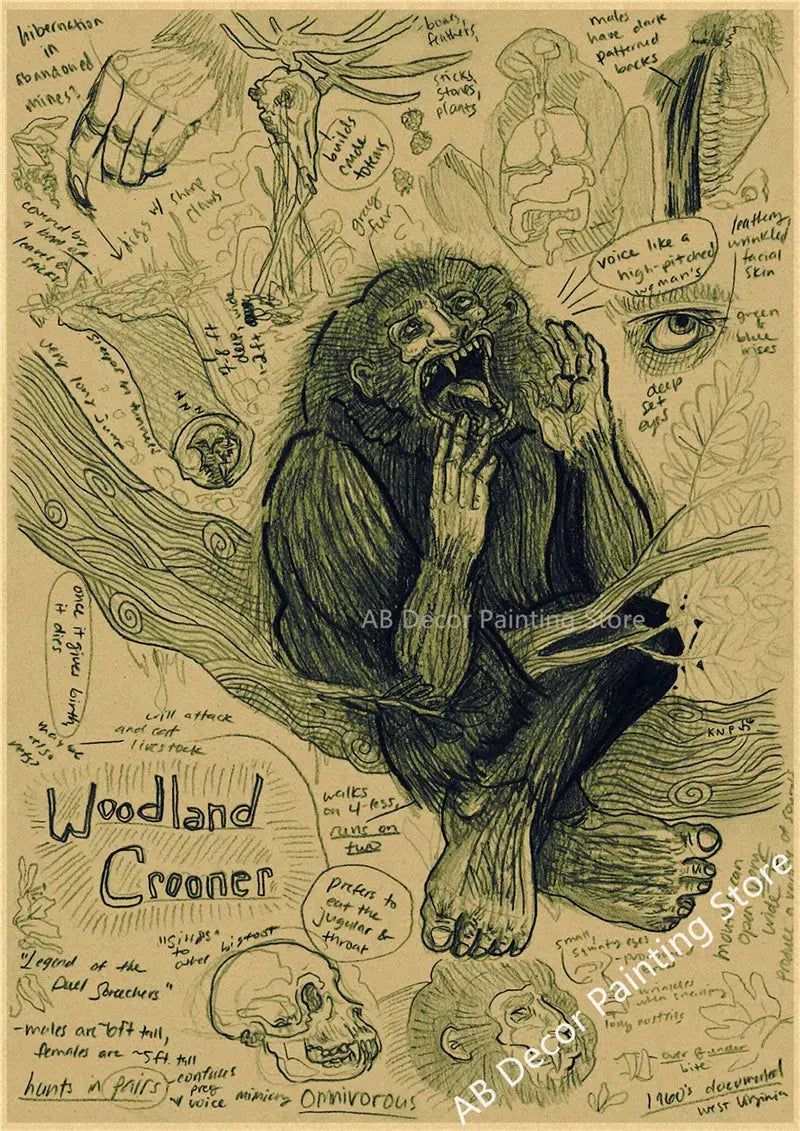 hibernation
in
abandoned
mines?
-bones,
feathers,
sticks,
stones,
plants
males
have dark
patterned
backs
builds
crude
totems
digs w/ sharp
claws
covered by
leaves &
sticks
gray
fur
voice like a
high-pitched
woman's
leathery,
wrinkled
facial
skin
green
&
blue
irises
deep
set
eyes
deep,
sleeps in
very long
once it gives birth
it dies
will attack
and eat
livestock
may be
also
pets?
AB Decor Painting Store
KNP
Woodland
Crooner
walks
on 4-legs,
runs on
two
prefers to
eat the
jugular &
throat
"sings"
to
other bigfoot
"Legend of the
Duel Screechers"
-males are ~6ft tall,
females are ~5ft tall
hunts in pairs
-confuses
prey
voice mimicing
Omnivorous
small,
squinty eyes
wrinkles
when sneering
long nostrils
over & under
bite
mouth can
open
wide
produce a
AB Decor Painting Store
1960's documented
West Virginia